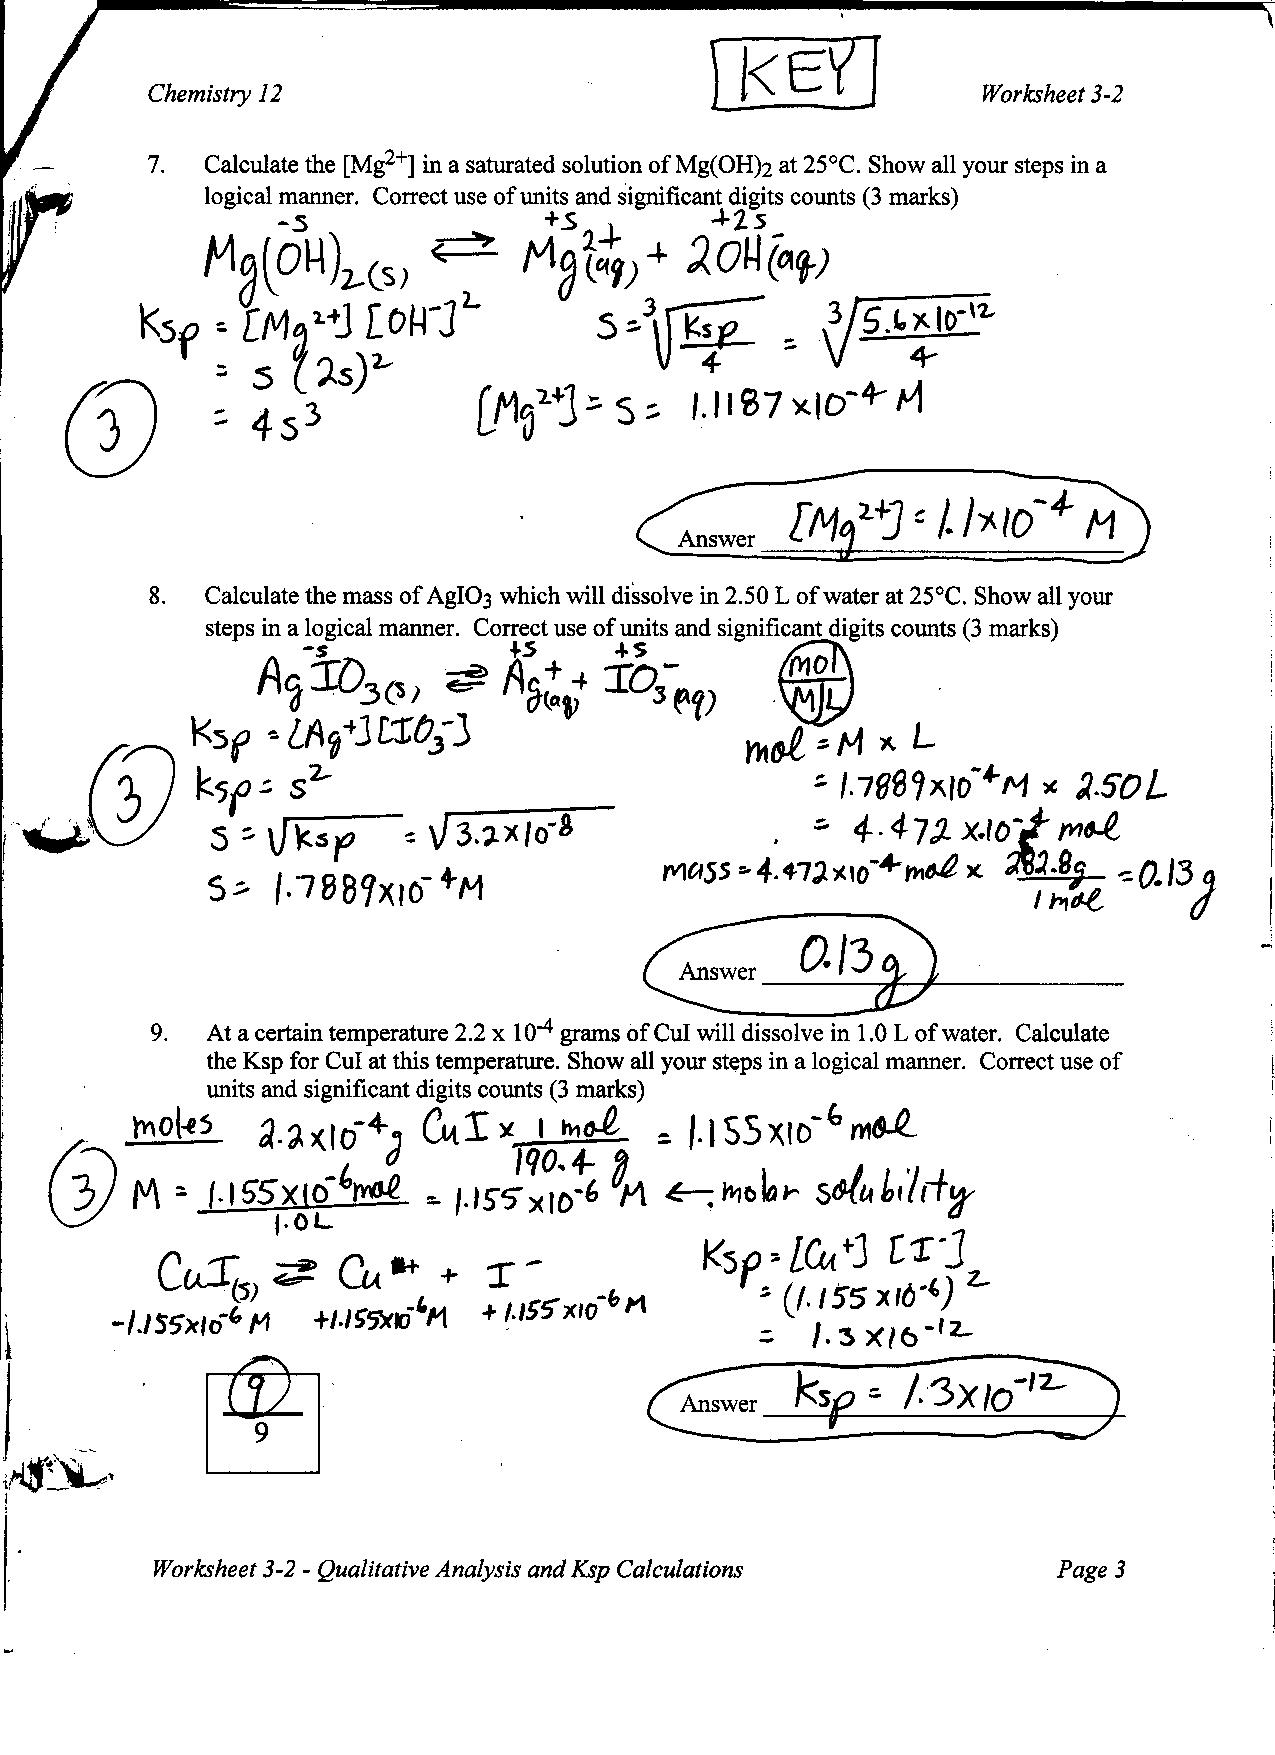 KEY
Chemistry 12 Worksheet 3-2
7. Calculate the [Mg²⁺] in a saturated solution of Mg(OH)₂ at 25°C. Show all your steps in a
logical manner. Correct use of units and significant digits counts (3 marks)
-s +s +2s
Mg(OH)₂(s) ⇌ Mg²⁺(aq) + 2OH⁻(aq)
Ksp = [Mg²⁺] [OH⁻]² s = ³√(Ksp/4) = ³√(5.6x10⁻¹²/4)
= s (2s)²
= 4s³ [Mg²⁺] = s = 1.1187 x10⁻⁴ M
3
Answer [Mg²⁺] = 1.1x10⁻⁴ M
8. Calculate the mass of AgIO₃ which will dissolve in 2.50 L of water at 25°C. Show all your
steps in a logical manner. Correct use of units and significant digits counts (3 marks)
-s +s +s
AgIO₃(s) ⇌ Ag⁺(aq) + IO₃⁻(aq) mol
M|L
Ksp = [Ag⁺][IO₃⁻] mol = M x L
3 Ksp = s² = 1.7889x10⁻⁴M x 2.50L
s = √Ksp = √3.2x10⁻⁸ = 4.472 x10⁻⁴ mol
s = 1.7889x10⁻⁴M mass = 4.472x10⁻⁴ mol x 282.8g/1 mol = 0.13 g
Answer 0.13g
9. At a certain temperature 2.2 x 10⁻⁴ grams of CuI will dissolve in 1.0 L of water. Calculate
the Ksp for CuI at this temperature. Show all your steps in a logical manner. Correct use of
units and significant digits counts (3 marks)
moles 2.2x10⁻⁴g CuI x 1 mol/190.4 g = 1.155x10⁻⁶ mol
3 M = 1.155x10⁻⁶mol/1.0L = 1.155x10⁻⁶ M ← molar solubility
CuI(s) ⇌ Cu⁺ + I⁻ Ksp = [Cu⁺] [I⁻]
-1.155x10⁻⁶ M +1.155x10⁻⁶M +1.155x10⁻⁶M = (1.155 x10⁻⁶)²
= 1.3 x10⁻¹²
9
9
Answer Ksp = 1.3x10⁻¹²
Worksheet 3-2 - Qualitative Analysis and Ksp Calculations Page 3